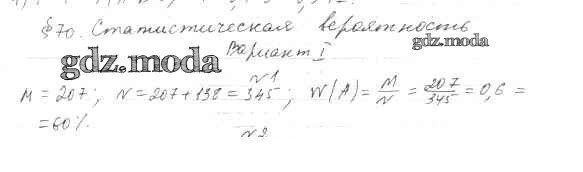 § 70. Статистическая вероятность
gdz.moda
Вариант I
gdz.moda
N 1
M = 207; N = 207 + 138 = 345; W(A) = M/N = 207/345 = 0,6 =
= 60 %.
N 2